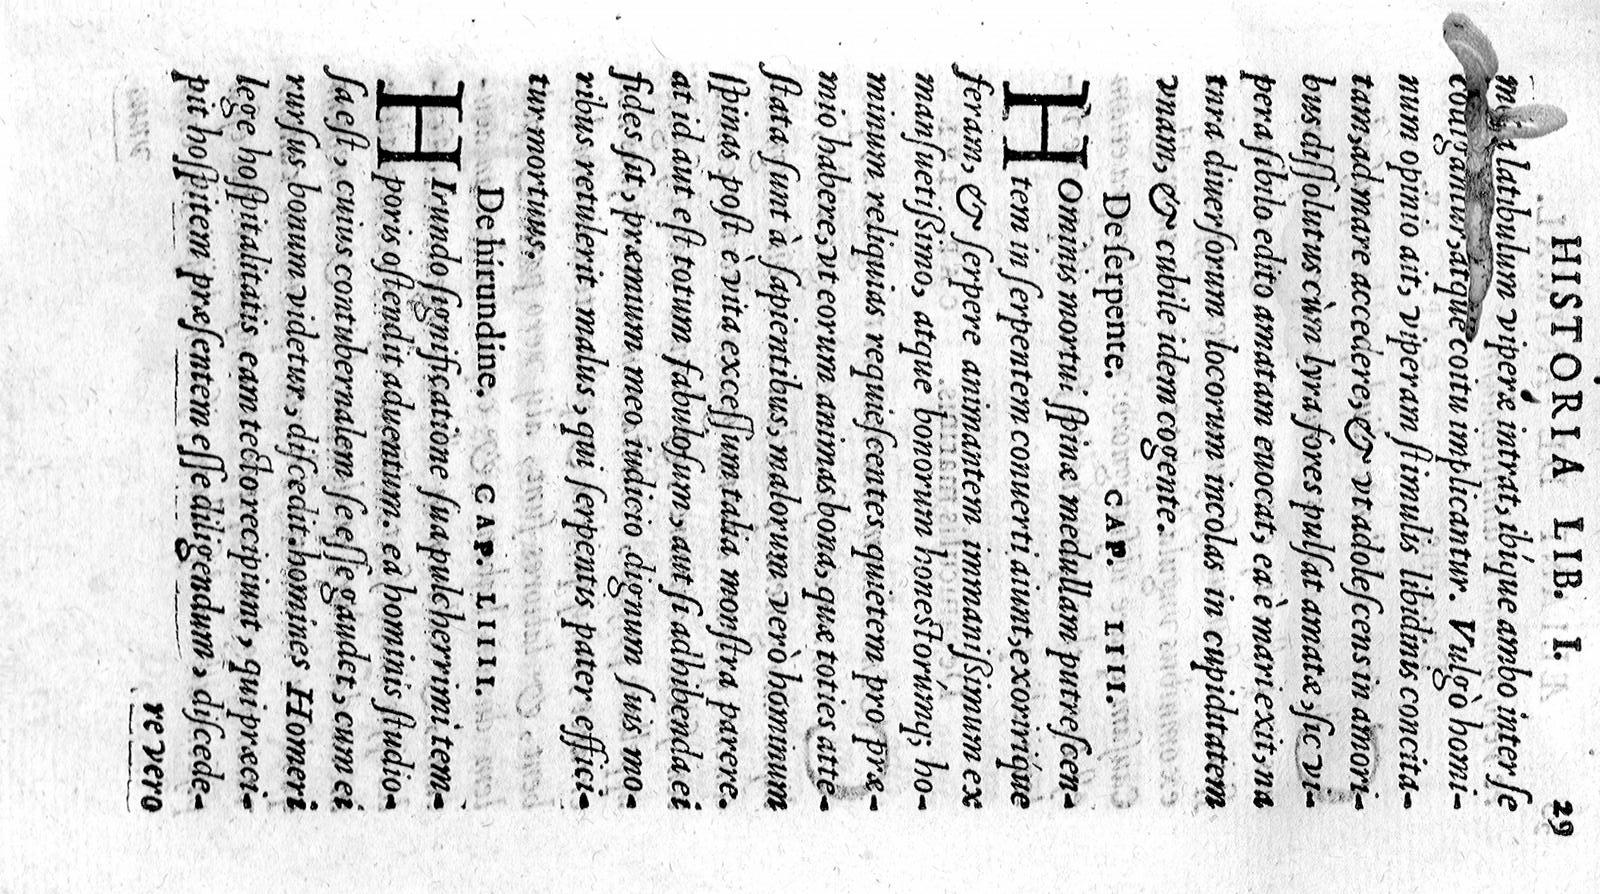 HISTORIA LIB. I. 29
latibulum viperæ intrat, ibíque ambo inter ſe
coniganturatque coitu implicantur. Vulgò homi-
num opinio ait, viperam ſtimulis libidinis concita-
tam, ad mare accedere, & vt adoleſcens in amori-
bus diſſolutus cùm lyra fores pulſat amatæ, ſic vi-
pera ſibilo edito amatam euocat, ea è mari exit, na
tura diuerſorum locorum incolas in cupiditatem
vnam, & cubile idem cogente.
De ſerpente. CAP. LIII.
HOminis mortui ſpinæ medullam putreſcen-
tem in ſerpentem conuerti aiunt, exoriríque
feram, & ſerpere animantem immaniſsimum ex
manſuetiſsimo, atque bonorum honeſtorúmq; ho-
minum reliquias requieſcentes quietem pro præ-
mio habere, vt eorum animas bona, quæ toties atte-
ſtata ſunt à ſapientibus, malorum verò hominum
ſpinas poſt è vita exceſſum talia monſtra parere.
at id aut eſt totum fabuloſum, aut ſi adhibenda ei
fides ſit, præmium meo iudicio dignum ſuis mo-
ribus retulerit malus, qui ſerpentis pater effici-
tur mortuus.
De hirundine. CAP. LIIII.
HIrundo ſignificatione ſua pulcherrimi tem-
poris oſtendit aduentum. ea hominis ſtudio-
ſa eſt, cuius contubernalem ſe eſſe gaudet, cum ei
rurſus bonum videtur, diſcedit. homines Homeri
lege hoſpitalitatis eam tecto recipiunt, qui præci-
pit hoſpitem præſentem eſſe diligendum, diſcede-
re vero